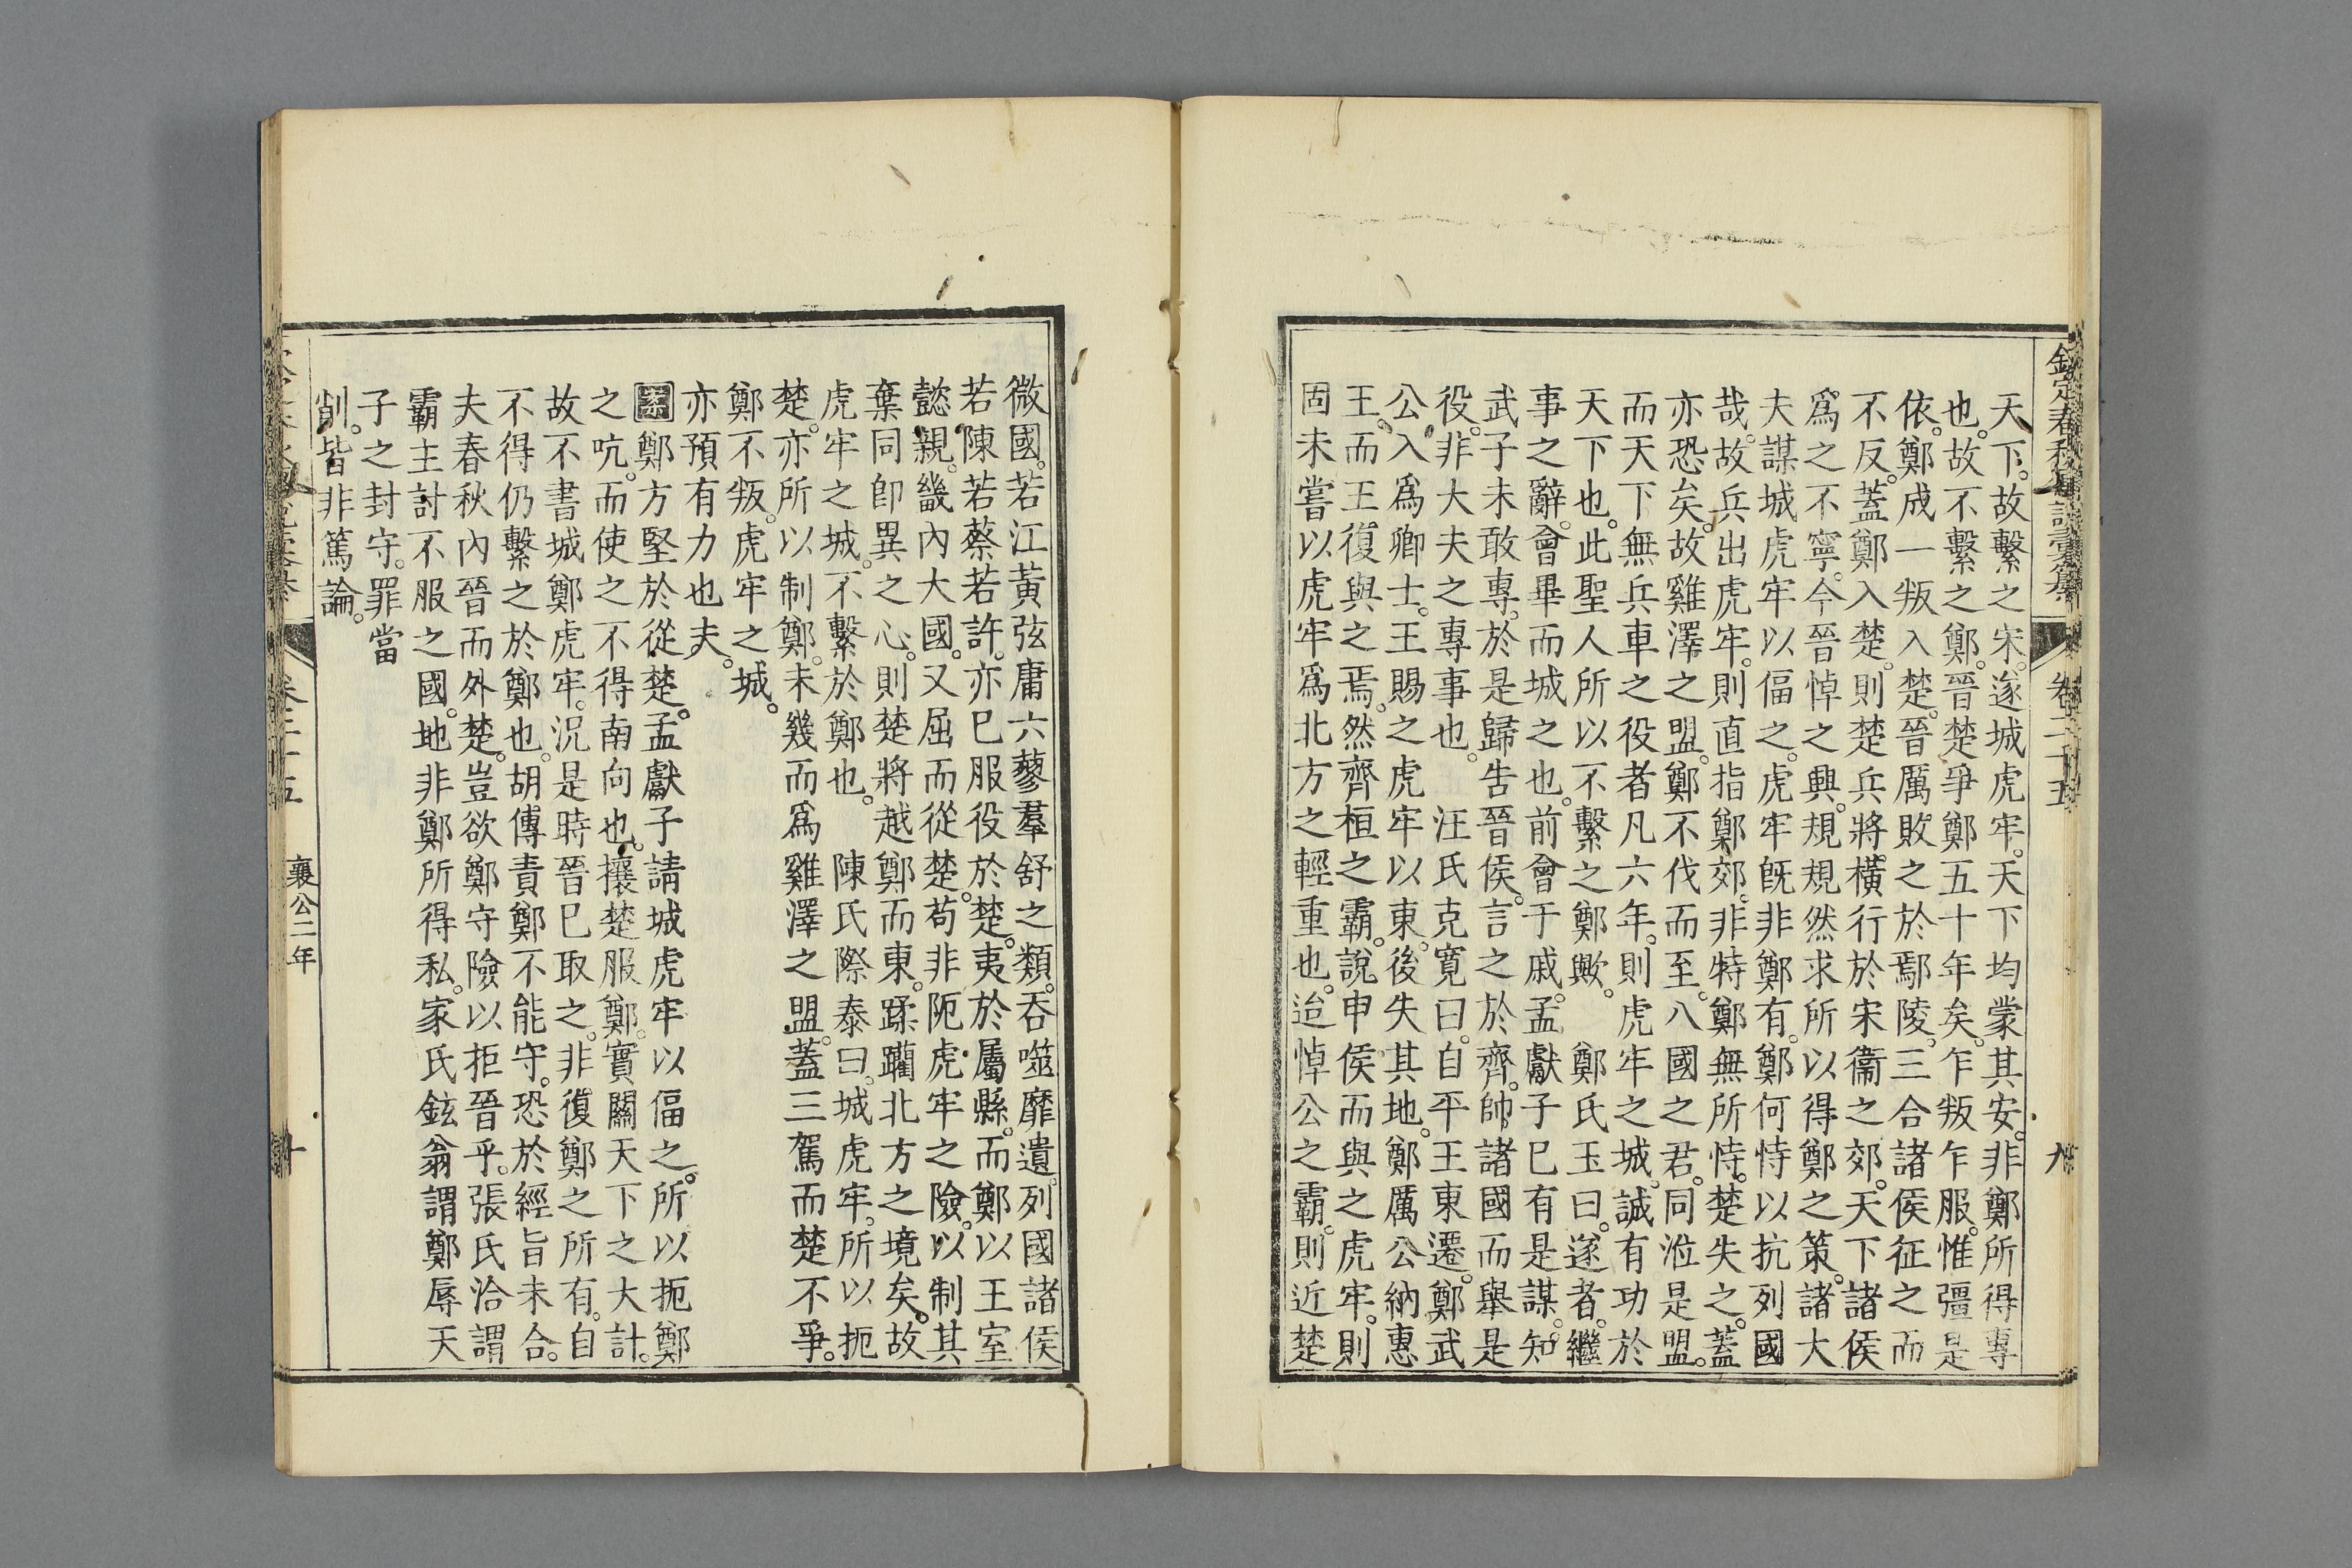 欽定春秋傳說彙纂 卷二十五 九
天下。故繫之宋。遂城虎牢。天下均蒙其安。非鄭所得專
也。故不繫之鄭。晉楚爭鄭五十年矣。乍叛乍服。惟彊是
依。鄭成一叛入楚。晉厲敗之於鄢陵。三合諸侯征之而
不反。蓋鄭入楚。則楚兵將橫行於宋衞之郊。天下諸侯
爲之不寧。今晉悼之興。規規然求所以得鄭之策。諸大
夫謀城虎牢以偪之。虎牢旣非鄭有。鄭何恃以抗列國
哉。故兵出虎牢。則直指鄭郊。非特鄭無所恃。楚失之。蓋
亦恐矣。故雞澤之盟。鄭不伐而至。八國之君。同涖是盟。
而天下無兵車之役者凡六年。則虎牢之城。誠有功於
天下也。此聖人所以不繫之鄭歟。 鄭氏玉曰。遂者。繼
事之辭。會畢而城之也。前會于戚。孟獻子已有是謀。知
武子未敢專。於是歸告晉侯。言之於齊。帥諸國而舉是
役。非大夫之專事也。 汪氏克寬曰。自平王東遷。鄭武
公入爲卿士。王賜之虎牢以東。後失其地。鄭厲公納惠
王。而王復與之焉。然齊桓之霸。說申侯而與之虎牢。則
固未嘗以虎牢爲北方之輕重也。迨悼公之霸。則近楚
微國。若江黃弦庸六蓼羣舒之類。吞噬靡遺。列國諸侯
若陳若蔡若許。亦已服役於楚。夷於屬縣。而鄭以王室
懿親。畿內大國。又屈而從楚。苟非阨虎牢之險。以制其
棄同卽異之心。則楚將越鄭而東。蹂躪北方之境矣。故
虎牢之城。不繫於鄭也。 陳氏際泰曰。城虎牢。所以扼
楚。亦所以制鄭。未幾而爲雞澤之盟。蓋三駕而楚不爭。
鄭不叛。虎牢之城。
亦預有力也夫。
案鄭方堅於從楚。孟獻子請城虎牢以偪之。所以扼鄭
之吭。而使之不得南向也。攘楚服鄭。實關天下之大計。
故不書城鄭虎牢。況是時晉已取之。非復鄭之所有。自
不得仍繫之於鄭也。胡傳責鄭不能守。恐於經旨未合。
夫春秋內晉而外楚。豈欲鄭守險以拒晉乎。張氏洽謂
霸主討不服之國。地非鄭所得私。家氏鉉翁謂鄭辱天
子之封守。罪當
削。皆非篤論。
卷二十五 襄公二年 十